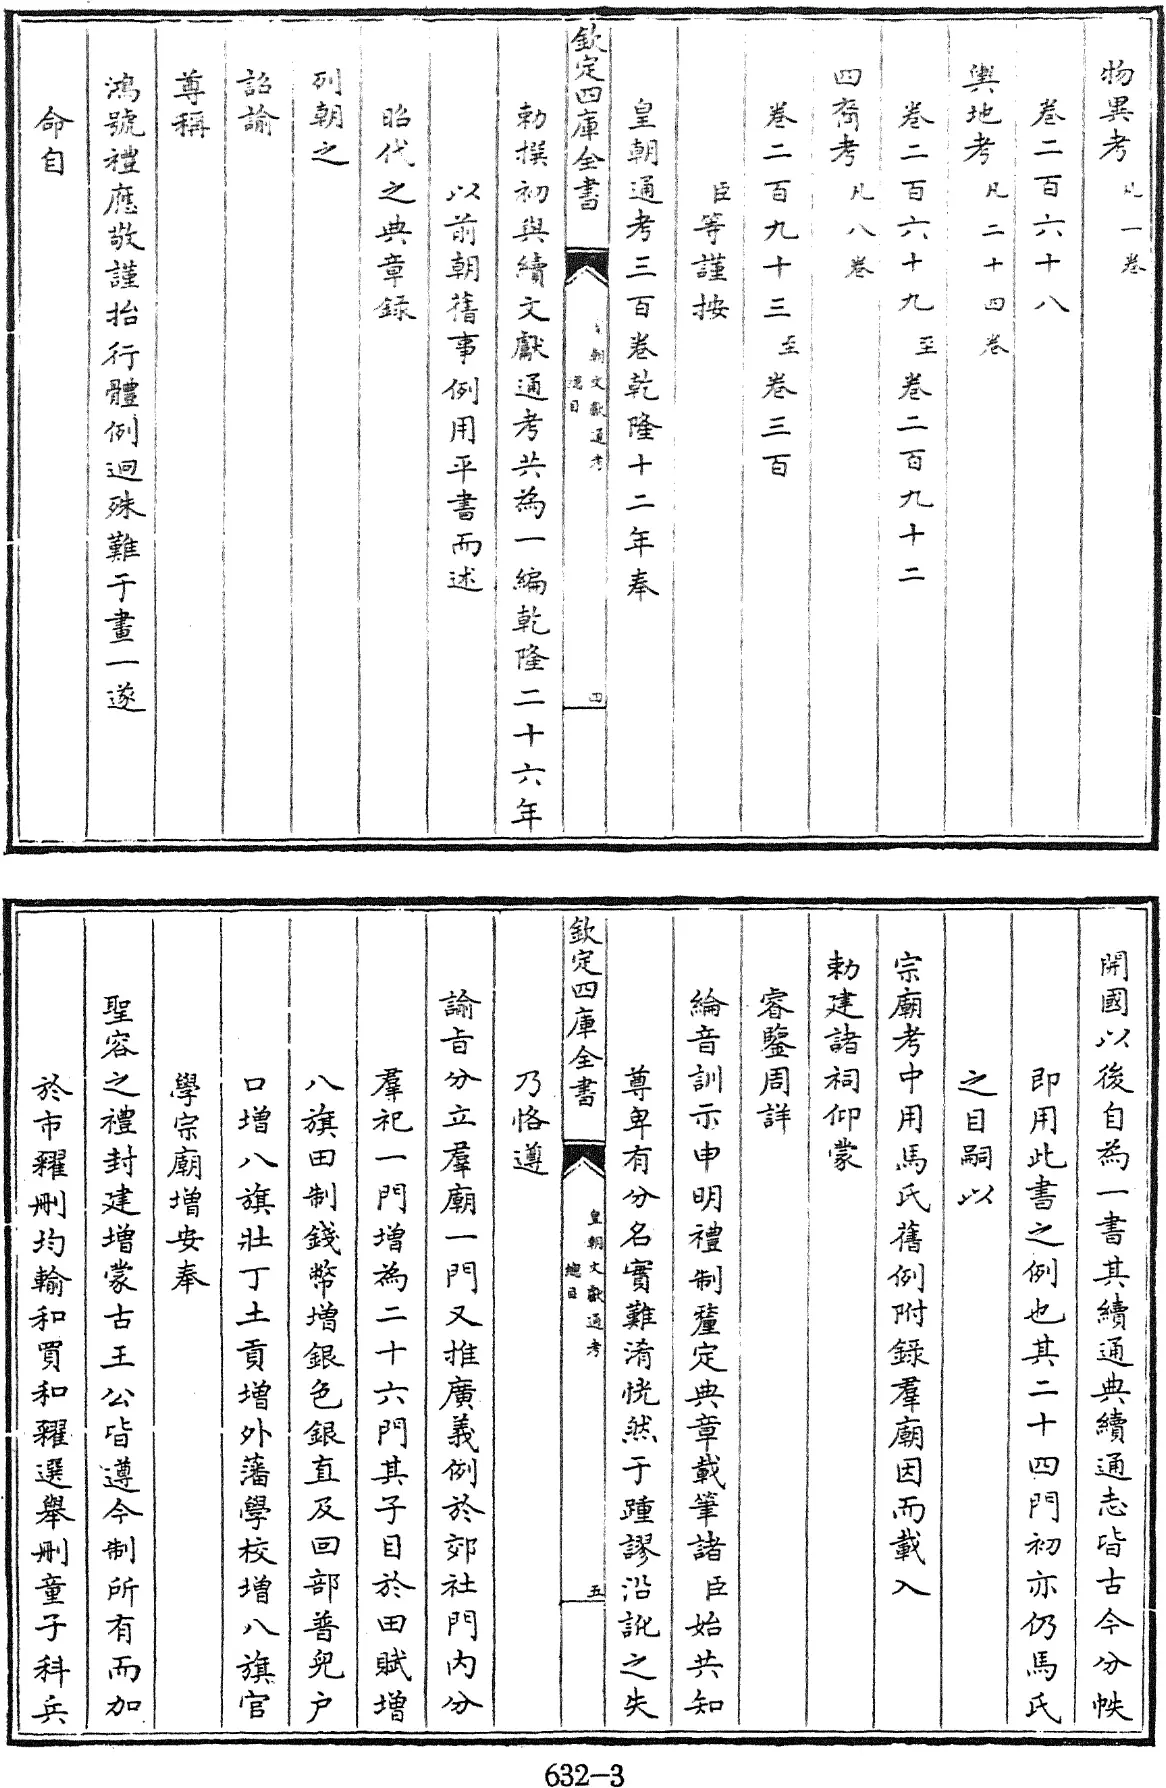 物異考凡一卷
卷二百六十八
輿地考凡二十四卷
卷二百六十九至卷二百九十二
四裔考凡八卷
卷二百九十三至卷三百
臣等謹按
皇朝通考三百卷乾隆十二年奉
欽定四庫全書
朝文獻通考
總目
四
勅撰初與續文獻通考共為一編乾隆二十六年
以前朝舊事例用平書而述
昭代之典章録
列朝之
詔諭
尊稱
鴻號禮應敬謹抬行體例迥殊難于畫一遂
命自
開國以後自為一書其續通典續通志皆古今分帙
即用此書之例也其二十四門初亦仍馬氏
之目嗣以
宗廟考中用馬氏舊例附錄羣廟因而載入
勅建諸祠仰蒙
睿鑒周詳
綸音訓示申明禮制釐定典章載筆諸臣始共知
尊卑有分名實難淆恍然于踵謬沿訛之失
欽定四庫全書
皇朝文獻通考
總目
五
乃恪遵
諭旨分立羣廟一門又推廣義例於郊社門内分
羣祀一門增為二十六門其子目於田賦增
八旗田制錢幣增銀色銀直及回部普兒户
口增八旗壯丁土貢增外藩學校增八旗官
學宗廟增安奉
聖容之禮封建增蒙古王公皆遵今制所有而加
於市糴刪均輸和買和糴選舉刪童子科兵
632-3